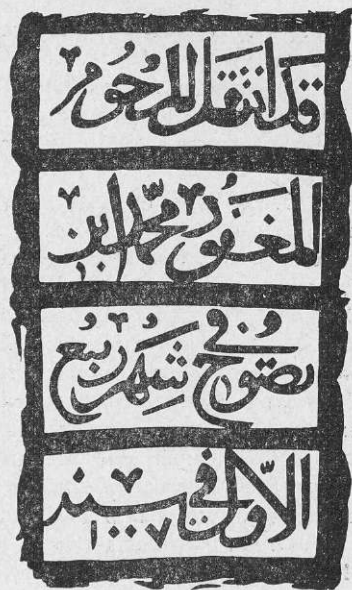 قد انتقل المرحوم
المغفور محمد ابن
نصوح في شهر ربيع
الاول في سنه
١٠٠٧